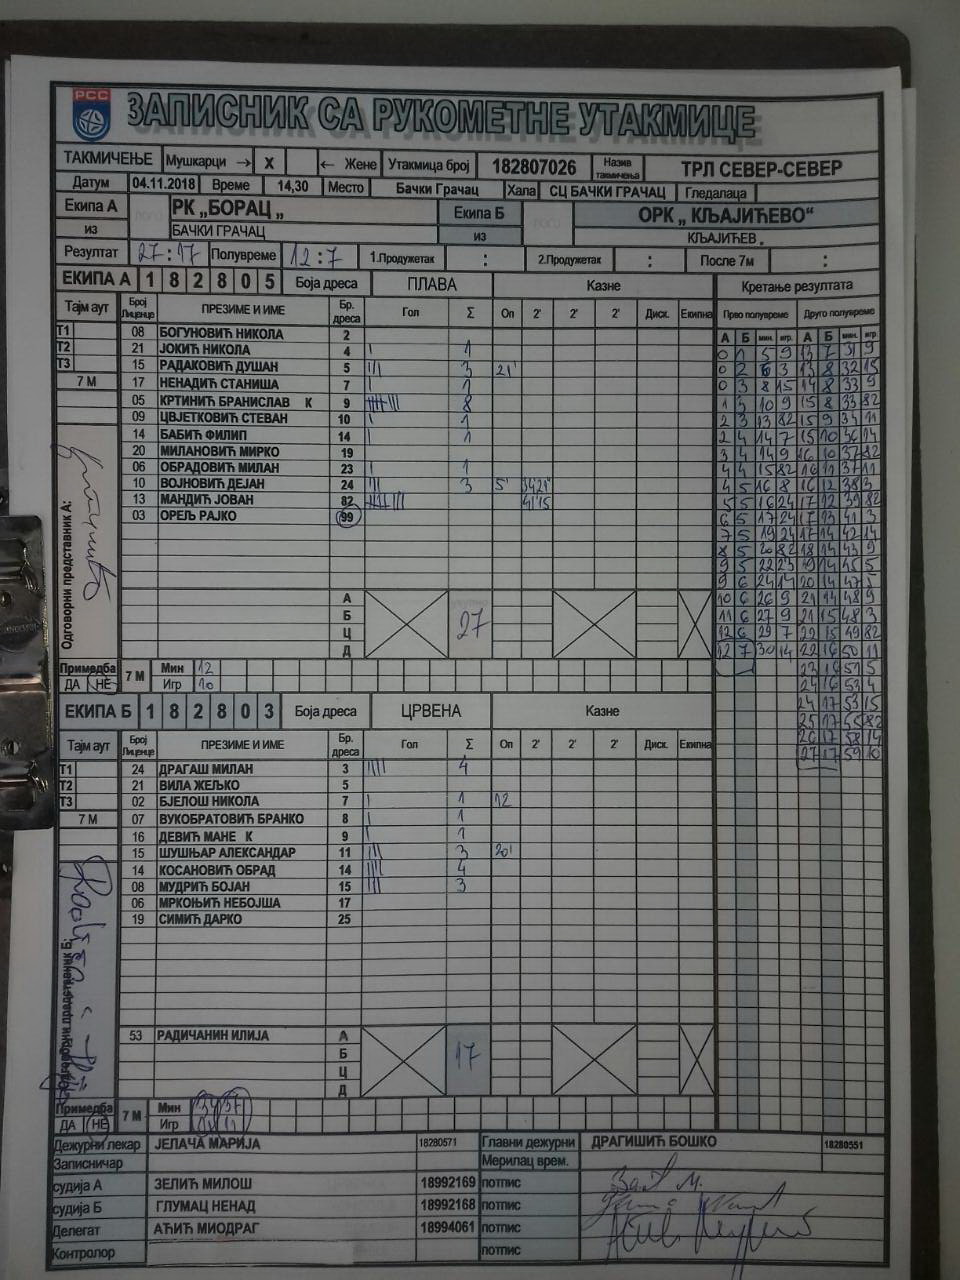 РСС
ЗАПИСНИК СА РУКОМЕТНЕ УТАКМИЦЕ
ТАКМИЧЕЊЕ Мушкарци → X ← Жене Утакмица број 182807026 Назив такмичења ТРЛ СЕВЕР-СЕВЕР
Датум 04.11.2018 Време 14,30 Место Бачки Грачац Хала СЦ БАЧКИ ГРАЧАЦ Гледалаца
Екипа А РК „БОРАЦ „ Екипа Б ОРК „ КЉАЈИЋЕВО“
из БАЧКИ ГРАЧАЦ из КЉАЈИЋЕВ .
Резултат 27:17 Полувреме 12:7 1.Продужетак : 2.Продужетак : После 7м :
ЕКИПА А 1 8 2 8 0 5 Боја дреса ПЛАВА Казне Кретање резултата
Тајм аут Број Лиценце ПРЕЗИМЕ И ИМЕ Бр. дреса Гол Σ Оп 2' 2' 2' Диск. Екипна Прво полувреме Друго полувреме
А Б мин. игр. А Б мин. игр.
Т1 08 БОГУНОВИЋ НИКОЛА 2
Т2 21 ЈОКИЋ НИКОЛА 4 1
Т3 15 РАДАКОВИЋ ДУШАН 5 3 21'
7 М 17 НЕНАДИЋ СТАНИША 7 1
05 КРТИНИЋ БРАНИСЛАВ К 9 8
09 ЦВЈЕТКОВИЋ СТЕВАН 10 1
14 БАБИЋ ФИЛИП 14 1
20 МИЛАНОВИЋ МИРКО 19
06 ОБРАДОВИЋ МИЛАН 23 1
10 ВОЈНОВИЋ ДЕЈАН 24 3 5'
13 МАНДИЋ ЈОВАН 82
03 ОРЕЉ РАЈКО 99
Одговорни представник А:
А
Б
Ц
Д
27
Примедба ДА НЕ 7 М Мин 12
Игр 10
ЕКИПА Б 1 8 2 8 0 3 Боја дреса ЦРВЕНА Казне
Тајм аут Број Лиценце ПРЕЗИМЕ И ИМЕ Бр. дреса Гол Σ Оп 2' 2' 2' Диск. Екипна
Т1 24 ДРАГАШ МИЛАН 3 4
Т2 21 ВИЛА ЖЕЉКО 5
Т3 02 БЈЕЛОШ НИКОЛА 7 1 12
7 М 07 ВУКОБРАТОВИЋ БРАНКО 8 1
16 ДЕВИЋ МАНЕ К 9 1
15 ШУШЊАР АЛЕКСАНДАР 11 3 20'
14 КОСАНОВИЋ ОБРАД 14 4
08 МУДРИЋ БОЈАН 15 3
06 МРКОЊИЋ НЕБОЈША 17
19 СИМИЋ ДАРКО 25
Одговорни представник Б:
53 РАДИЧАНИН ИЛИЈА А
Б
Ц
Д
17
Примедба ДА НЕ 7 М Мин 34 37
Игр
0 1 5 9 13 7 31 9
0 2 6 3 13 8 32 15
0 3 8 15 14 8 33 9
1 3 10 9 15 8 33 82
2 3 13 82 15 9 34 11
2 4 14 7 15 10 36 14
3 4 14 9 16 10 37 82
4 4 15 82 16 11 37 11
4 5 16 8 16 12 38 3
5 5 16 24 17 12 39 82
6 5 17 24 17 13 41 3
7 5 19 24 17 14 42 14
8 5 20 82 18 14 43 9
9 5 22 23 19 14 45 5
9 6 24 14 20 14 47 5
10 6 26 9 21 14 48 9
11 6 27 9 21 15 48 3
12 6 29 7 22 15 49 82
12 7 30 14 22 16 50 11
23 16 51 5
24 16 53 4
24 17 53 15
25 17 55 82
26 17 58 14
27 17 59 10
Дежурни лекар ЈЕЛАЧА МАРИЈА 18280571 Главни дежурни ДРАГИШИЋ БОШКО 18280551
Записничар Мерилац врем.
судија А ЗЕЛИЋ МИЛОШ 18992169 потпис
судија Б ГЛУМАЦ НЕНАД 18992168 потпис
Делегат АЋИЋ МИОДРАГ 18994061 потпис
Контролор потпис